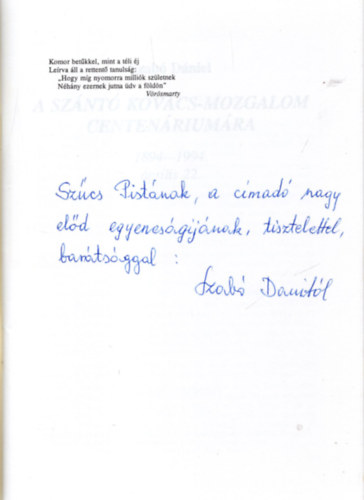 Komor betűkkel, mint a téli éj
Leírva áll a rettentő tanulság:
„Hogy míg nyomorra milliók születnek
Néhány ezernek jutna üdv a földön"
Vörösmarty
A SZÁNTÓ KOVÁCS-MOZGALOM
CENTENÁRIUMÁRA
Szűcs Pistának, a címadó nagy
előd egyeneságijának, tisztelettel,
barátsággal:
Szabó Danitól